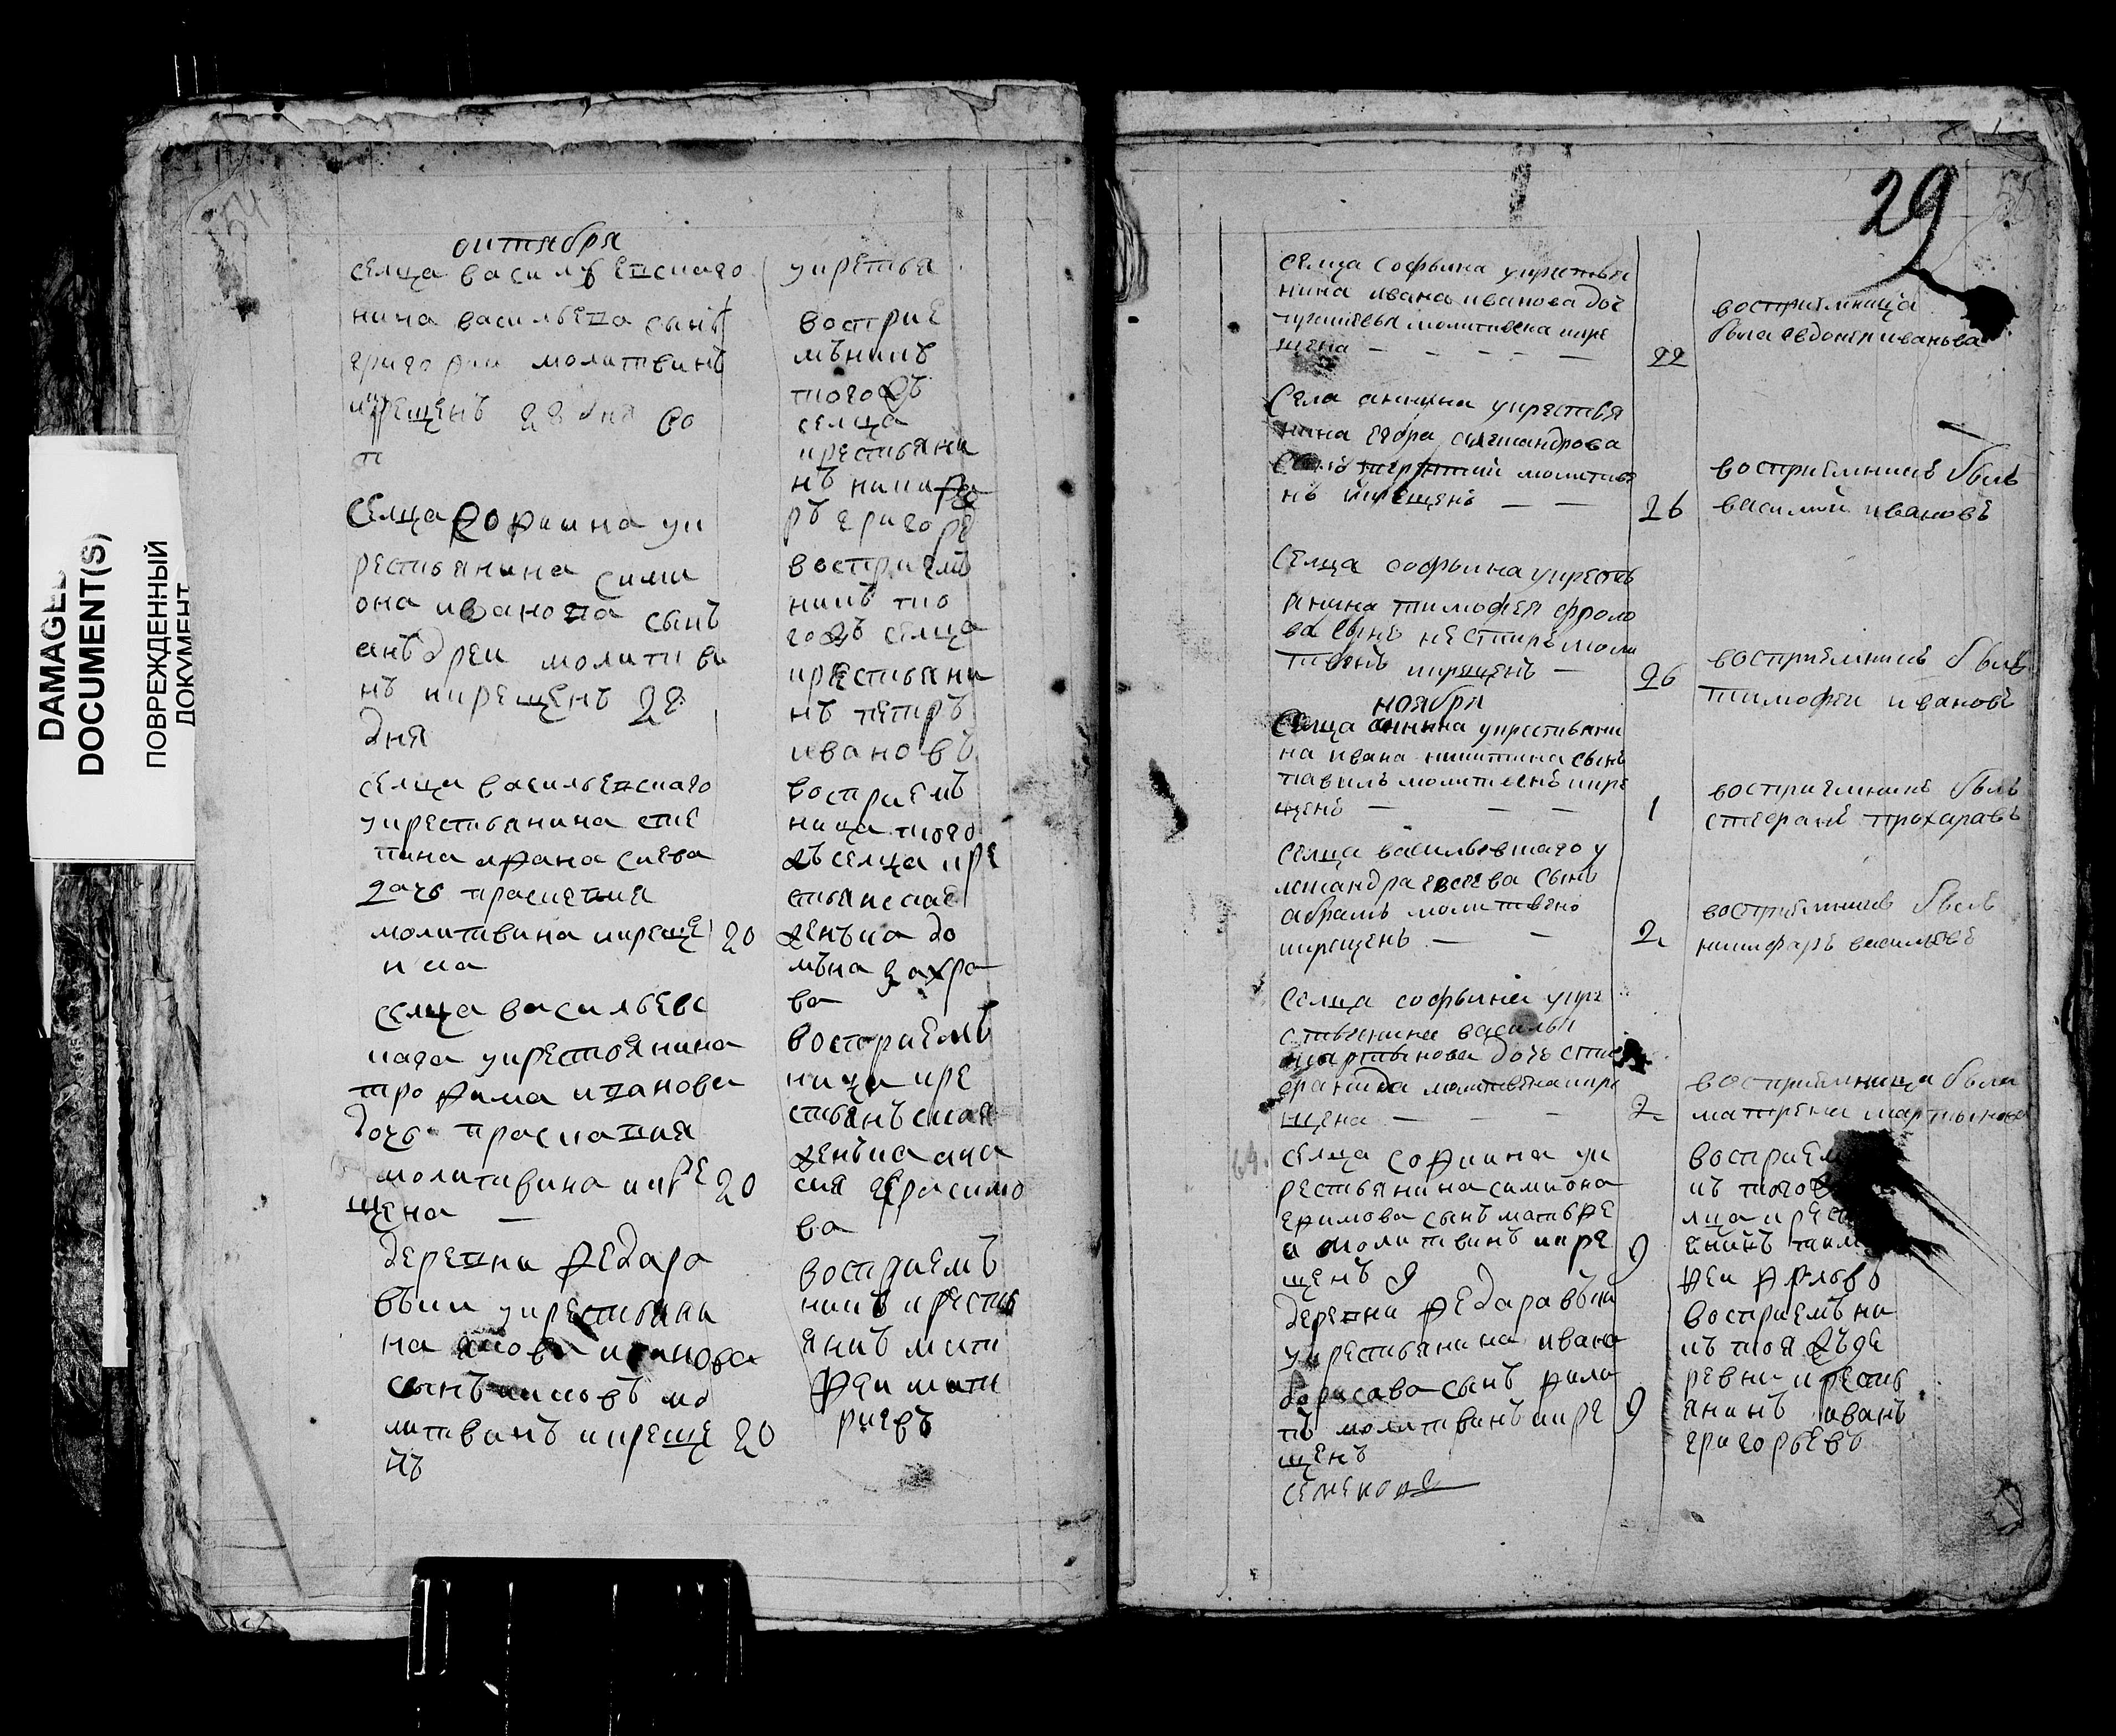 DAMAGED
DOCUMENT(S)
ПОВРЕЖДЕННЫЙ
ДОКУМЕНТ
54
октября
селца василъевскаго
укрестья
нина васильева сынъ
григореи молитвинъ
крещенъ 28 дня во
восприе
мъникъ
тогожъ
селца
крестьяни
нъ ники
ръ григоре
селца софиина ук
рестьянина сими
она иванова сынъ
анъдреи молитви
нъ икрещенъ 28
дня
восприемъ
никъ то
гожъ селца
крестьяни
нъ петръ
ивановъ
селца васильевскаго
укрестьянина сте
пана
дочь
молитвина икреще 20
на
восприемъ
ница того
жъ селца кре
стьянская
женъка до
мъна захра
ва
селца васильевс
каго укрестьянина
трофима иванова
дочь прасковия
молитвина икре 20
щена
восприемъ
ница кре
стьянъская
женъка
сия герасимо
ва
деревни федаро
въки укрестьяни
на иванова
сынъ мо
литвинъ икреще 20
нъ
восприемъ
никъ кресть
янинъ мати
феи мати
29
55
селца софьина укрестья
нина ивана иванова доч
молитвена икре
щена
22
восприемница
была евдокия иванова
села аннина укрестья
нина егора александрова
сынъ молитве
нъ икрещенъ
26
восприемникъ былъ
василий ивановъ
селца софьина укресть
янина тимофея фроло
ва сынъ нестиръ моли
твенъ икрещенъ
26
восприемникъ былъ
тимофеи ивановъ
ноября
селца аннина укрестьяни
на ивана никитина сынъ
павилъ молитвенъ икре
щенъ
1
восприемникъ былъ
стефанъ прохаравъ
селца васильевшаго у
лександра евсеева сынъ
абрамъ молитвено
икрещенъ
2
восприемникъ былъ
никифаръ васильевъ
селца софьина укре
стьенина василья
мартынова дочь сте
фанида молитвена икре
щена
2
восприемница была
матрена мартынова
64.
селца софиина ук
рестьянина симиона
ефимова сынъ матъфе
и молитвинъ икре 9
щенъ 9
восприем
къ того
лца крес
янинъ тим
феи
деревни федаравъки
укрестьянина ивана
борисава сынъ фили
пъ молитвинъ икре 9
щенъ
восприемъни
къ тоя жъ де
ревни кресть
янинъ иванъ
григорьевъ